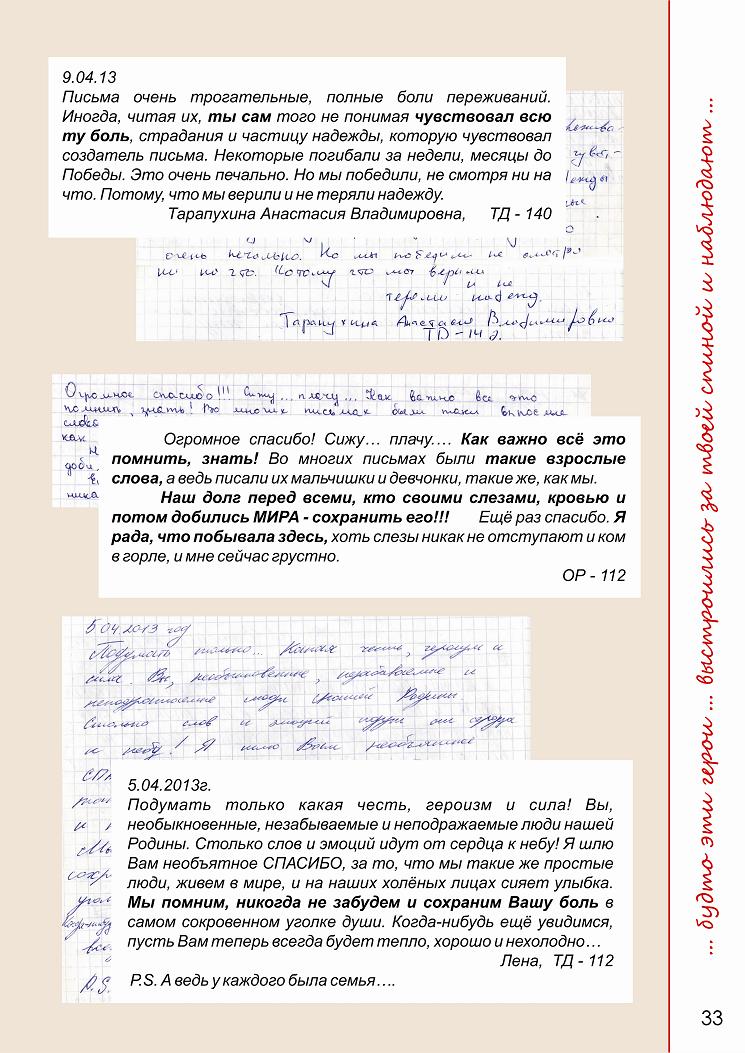 9.04.13
Письма очень трогательные, полные боли переживаний.
Иногда, читая их, ты сам того не понимая чувствовал всю
ту боль, страдания и частицу надежды, которую чувствовал
создатель письма. Некоторые погибали за недели, месяцы до
Победы. Это очень печально. Но мы победили, не смотря ни на
что. Потому, что мы верили и не теряли надежду.
Тарапухина Анастасия Владимировна, ТД - 140
очень печально. Но мы победили не смотря
ни на что. Потому что мы верили
и не
теряли надежд.
Тарапухина Анастасия Владимировна
ТД-14
Огромное спасибо!!! Сижу... плачу... Как важно все это
помнить, знать! Во многих письмах были такие взрослые
слова
как
Огромное спасибо! Сижу… плачу.… Как важно всё это
помнить, знать! Во многих письмах были такие взрослые
слова, а ведь писали их мальчишки и девчонки, такие же, как мы.
Наш долг перед всеми, кто своими слезами, кровью и
потом добились МИРА - сохранить его!!! Ещё раз спасибо. Я
рада, что побывала здесь, хоть слезы никак не отступают и ком
в горле, и мне сейчас грустно.
ОР - 112
5.04.2013 год
Подумать только... Какая честь, героизм и
сила. Вы, необыкновенные, незабываемые и
неподражаемые люди нашей Родины.
Столько слов и эмоций идут от сердца
к небу! Я шлю Вам необъятное
5.04.2013г.
Подумать только какая честь, героизм и сила! Вы,
необыкновенные, незабываемые и неподражаемые люди нашей
Родины. Столько слов и эмоций идут от сердца к небу! Я шлю
Вам необъятное СПАСИБО, за то, что мы такие же простые
люди, живем в мире, и на наших холёных лицах сияет улыбка.
Мы помним, никогда не забудем и сохраним Вашу боль в
самом сокровенном уголке души. Когда-нибудь ещё увидимся,
пусть Вам теперь всегда будет тепло, хорошо и нехолодно…
Лена, ТД - 112
P.S. А ведь у каждого была семья….
P.S.
... будто эти герои ... выстроились за твоей спиной и наблюдают ...
33